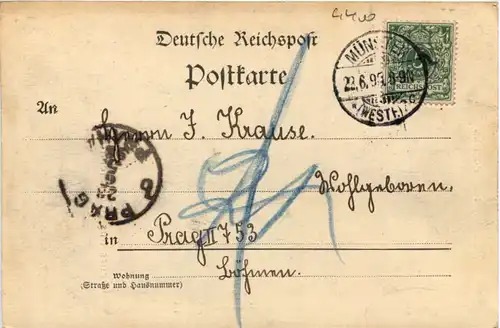 Deutsche Reichspost
Postkarte
MÜNSTER
22.6.99. 8-9N
*(WESTF.)
REICHSPOST
An
Herrn J. Krause.
Wohlgeboren,
PRAG
2
in Prag II 753
Böhmen.
Wohnung
(Straße und Hausnummer)